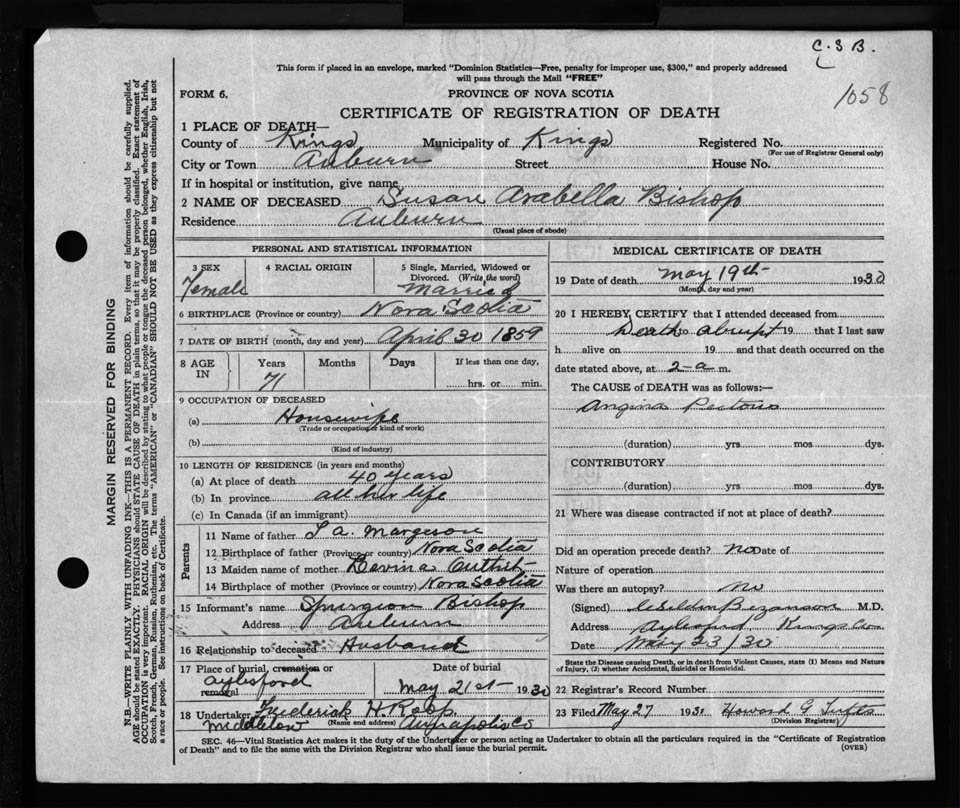 C.S B.
1058
This form if placed in an envelope, marked "Dominion Statistics—Free, penalty for improper use, $300," and properly addressed
will pass through the Mail "FREE"
FORM 6.
PROVINCE OF NOVA SCOTIA
CERTIFICATE OF REGISTRATION OF DEATH
1 PLACE OF DEATH—
County of Kings Municipality of Kings Registered No.
(For use of Registrar General only)
City or Town Auburn Street House No.
If in hospital or institution, give name
2 NAME OF DECEASED Susan Arabella Bishop
Residence Auburn
(Usual place of abode)
PERSONAL AND STATISTICAL INFORMATION
3 SEX Female
4 RACIAL ORIGIN
5 Single, Married, Widowed or
Divorced. (Write the word)
Married
6 BIRTHPLACE (Province or country) Nova Scotia
7 DATE OF BIRTH (month, day and year) April 30 1859
8 AGE IN Years 71 Months Days If less than one day,
hrs. or min.
9 OCCUPATION OF DECEASED
(a) Housewife
(Trade or occupation or kind of work)
(b)
(Kind of industry)
10 LENGTH OF RESIDENCE (in years and months)
(a) At place of death 40 years
(b) In province all her life
(c) In Canada (if an immigrant)
Parents
11 Name of father Margeson
12 Birthplace of father (Province or country) Nova Scotia
13 Maiden name of mother
14 Birthplace of mother (Province or country) Nova Scotia
15 Informant's name Spurgeon Bishop
Address Auburn
16 Relationship to deceased Husband
17 Place of burial, cremation or
removal Aylesford
Date of burial
May 21st 1930
18 Undertaker Frederick H. Robb
(Name and address)
Middleton Annapolis Co
MEDICAL CERTIFICATE OF DEATH
19 Date of death May 19th 1930
(Month, day and year)
20 I HEREBY CERTIFY that I attended deceased from
Death abrupt 19 that I last saw
h alive on 19 and that death occurred on the
date stated above, at 2-a m.
The CAUSE of DEATH was as follows:—
Angina Pectoris
(duration) yrs mos dys.
CONTRIBUTORY
(duration) yrs. mos. dys.
21 Where was disease contracted if not at place of death?
Did an operation precede death? no Date of
Nature of operation
Was there an autopsy? No
(Signed) Bezanson M.D.
Address Aylesford Kings Co
Date May 23/30
State the Disease causing Death, or in death from Violent Causes, state (1) Means and Nature
of Injury, (2) whether Accidental, Suicidal or Homicidal.
22 Registrar's Record Number
23 Filed May 27 1930 Howard G Tufts
(Division Registrar)
SEC. 46—Vital Statistics Act makes it the duty of the Undertaker or person acting as Undertaker to obtain all the particulars required in the "Certificate of Registration
of Death" and to file the same with the Division Registrar who shall issue the burial permit.
(OVER)
MARGIN RESERVED FOR BINDING
N.B.—WRITE PLAINLY WITH UNFADING INK—THIS IS A PERMANENT RECORD. Every item of information should be carefully supplied.
AGE should be stated EXACTLY. PHYSICIANS should STATE CAUSE OF DEATH in plain terms, so that it may be properly classified. Exact statement of
OCCUPATION is very important. RACIAL ORIGIN will be described by stating to what people or tongue the deceased person belonged, whether English, Irish,
Scotch, French, German, Russian, Ruthenian, etc. The terms "AMERICAN" or "CANADIAN" SHOULD NOT BE USED as they express citizenship but not
a race or people. See instructions on back of Certificate.